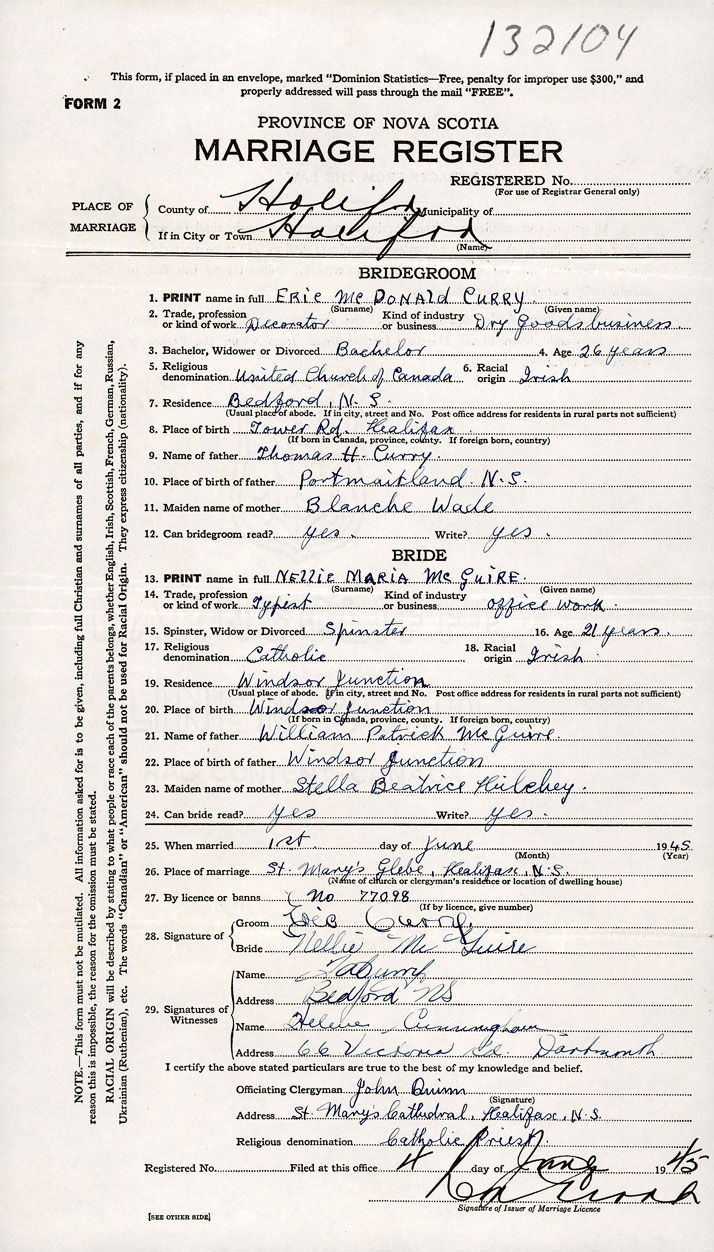 132104
This form, if placed in an envelope, marked "Dominion Statistics—Free, penalty for improper use $300," and
properly addressed will pass through the mail "FREE".
FORM 2
PROVINCE OF NOVA SCOTIA
MARRIAGE REGISTER
REGISTERED No.
(For use of Registrar General only)
PLACE OF MARRIAGE
County of Halifax Municipality of
If in City or Town Halifax
(Name)
BRIDEGROOM
1. PRINT name in full ERIC McDONALD CURRY
(Surname) (Given name)
2. Trade, profession or kind of work Decorator Kind of industry or business Dry Goods business.
3. Bachelor, Widower or Divorced Bachelor 4. Age 26 years
5. Religious denomination United Church of Canada 6. Racial origin Irish
7. Residence Bedford, N.S.
(Usual place of abode. If in city, street and No. Post office address for residents in rural parts not sufficient)
8. Place of birth Tower Rd. Halifax
(If born in Canada, province, county. If foreign born, country)
9. Name of father Thomas H. Curry.
10. Place of birth of father Portmaitland N.S.
11. Maiden name of mother Blanche Wade
12. Can bridegroom read? yes. Write? yes.
BRIDE
13. PRINT name in full NELLIE MARIA McGUIRE.
(Surname) (Given name)
14. Trade, profession or kind of work Typist Kind of industry or business office work.
15. Spinster, Widow or Divorced Spinster 16. Age 21 years.
17. Religious denomination Catholic 18. Racial origin Irish
19. Residence Windsor Junction
(Usual place of abode. If in city, street and No. Post office address for residents in rural parts not sufficient)
20. Place of birth Windsor Junction
(If born in Canada, province, county. If foreign born, country)
21. Name of father William Patrick McGuire.
22. Place of birth of father Windsor Junction
23. Maiden name of mother Stella Beatrice Hilchey.
24. Can bride read? yes Write? yes.
25. When married 1st day of June 1945
(Month) (Year)
26. Place of marriage St. Mary's Glebe, Halifax, N.S.
(Name of church or clergyman's residence or location of dwelling house)
27. By licence or banns (No 77098
(If by licence, give number)
28. Signature of
Groom Eric Curry
Bride Nellie McGuire
29. Signatures of Witnesses
Name
Address Bedford NS
Name Helene Cunningham
Address 66 Victoria Rd. Dartmouth
I certify the above stated particulars are true to the best of my knowledge and belief.
Officiating Clergyman John Quinn
(Signature)
Address St. Mary's Cathedral, Halifax, N.S.
Religious denomination Catholic Priest.
Registered No. Filed at this office 4 day of June 1945
Signature of Issuer of Marriage Licence
[SEE OTHER SIDE]
NOTE.—This form must not be mutilated. All information asked for is to be given, including full Christian and surnames of all parties, and if for any
reason this is impossible, the reason for the omission must be stated.
RACIAL ORIGIN will be described by stating to what people or race each of the parents belongs, whether English, Irish, Scottish, French, German, Russian,
Ukrainian (Ruthenian), etc. The words "Canadian" or "American" should not be used for Racial Origin. They express citizenship (nationality).